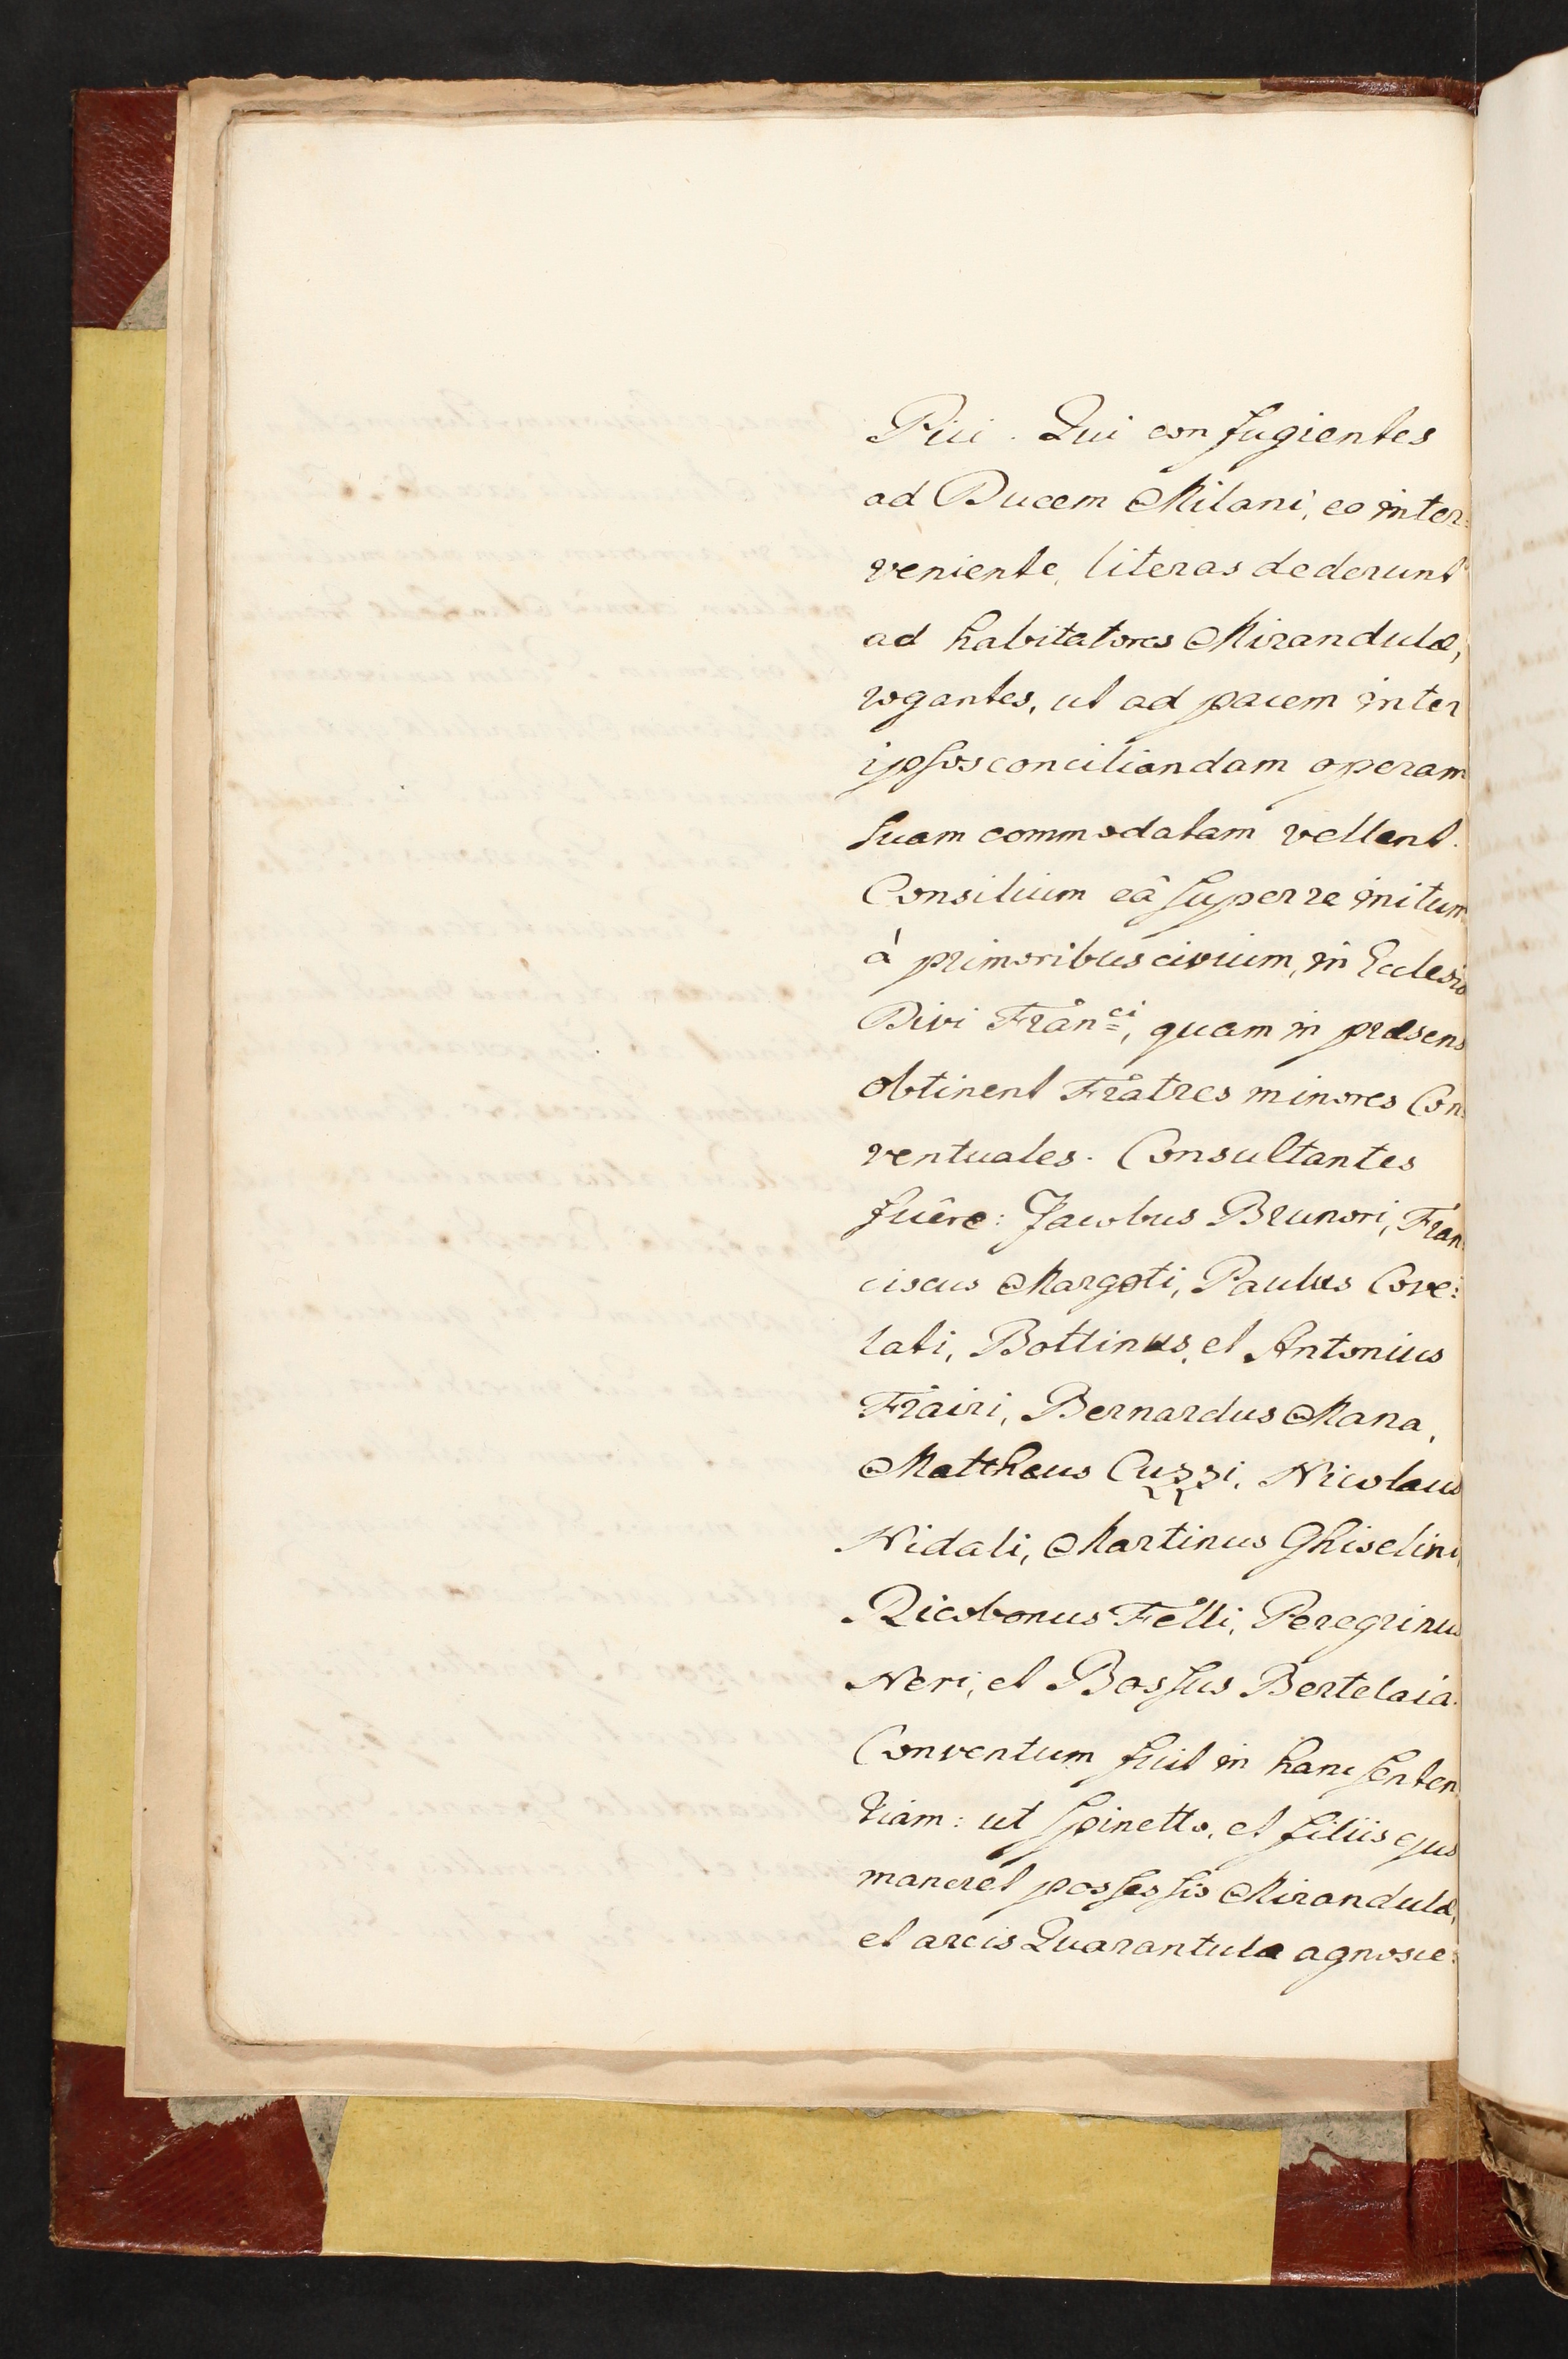 Pici. Qui confugientes
ad Ducem Milani, eo inter:
veniente, literas dederunt
ad habitatores Mirandulæ,
rogantes, ut ad pacem inter
ipsos conciliandam operam
suam commodatam vellent.
Consilium eâ super re initum
à primoribus civium, in Ecclesia
Divi Fran:ci, quam in præsens
obtinent Fratres minores Con:
ventuales. Consultantes
fuêre: Jacobus Brunori, Fran:
ciscus Margoti, Paulus Cove:
lati, Bottinus, et Antonius
Frairi, Bernardus Mana,
Matthæus Cuzzi, Nicolaus
Nidali, Martinus Ghiselini,
Ricobonus Felli, Peregrinus
Neri, et Bossus Bertelaia.
Conventum fuit in hanc senten
tiam: ut Spinetto, et filiis ejus
maneret possessio Mirandulæ,
et arcis Quarantulæ agnosce: